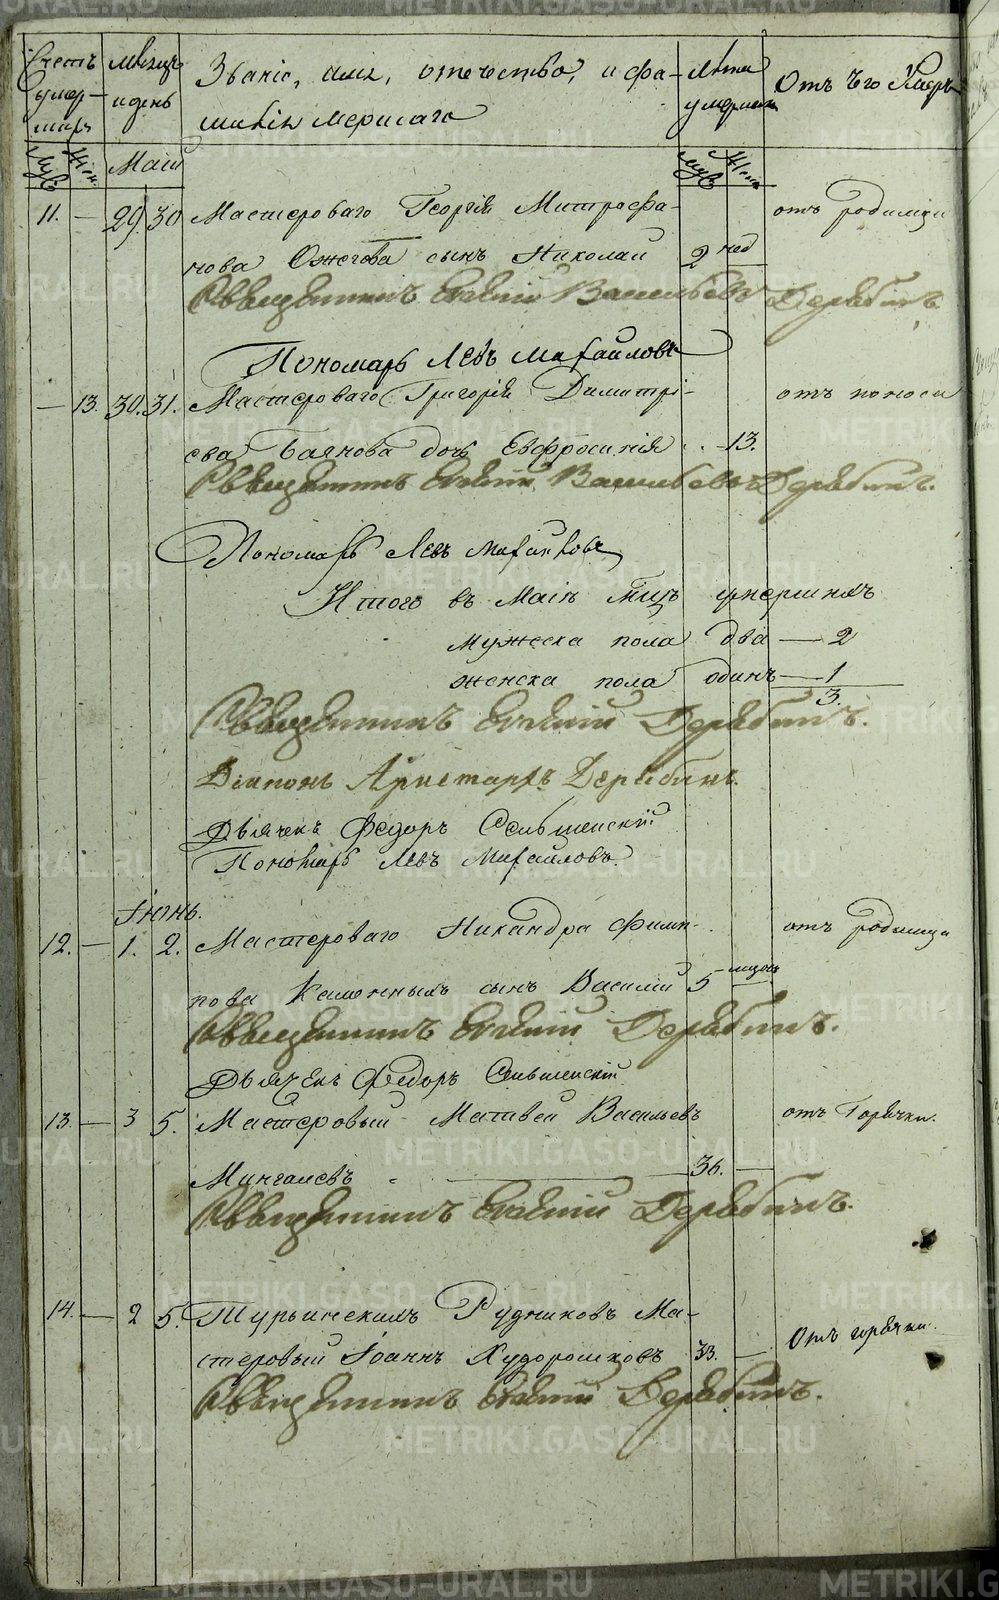 Счетъ умер- шихъ
мѣсяцъ и день
Званіе, имя, отечество, и фа-
милія мершаго
Лѣта умершихъ
Отъ чего умеръ
Муж. Жен.
Маій
Муж. Жен.
11. — 29 30 Мастероваго Георгія Митрофа- отъ родимца
нова Ожегова сынъ Николай 2 нед
Священникъ Евгеній Васильевъ Дерябинъ.
Пономарь Левъ Михайловъ
— 13. 30. 31. Мастероваго Григорія Димитрі- отъ поноса
ева Баянова дочь Евфросинія .. 13.
Священникъ Евгеній Васильевъ Дерябинъ.
Пономарь Левъ Михайловъ
Итого въ Маіѣ мцѣ умершихъ
мужеска пола два — 2
женска пола одинъ — 1
3.
Священникъ Евгеній Дерябинъ.
Діаконъ Аристархъ Дерябинъ.
Дьячекъ Федоръ
Пономарь Левъ Михайловъ.
Іюнь.
12. — 1. 2. Мастероваго Никандра Филип- отъ родимца
пова Каменныхъ сынъ Василій 5
Священникъ Евгеній Дерябинъ.
Дьячекъ Федоръ
13. — 3 5. Мастеровый Матвей Васильевъ отъ Горячки.
Мингалевъ 36. —
Священникъ Евгеній Дерябинъ.
14. — 2 5. Турьинскихъ Рудниковъ Ма-
стеровый Іоаннъ Худорошковъ 33. — Отъ горячки.
Священникъ Евгеній Дерябинъ.
METRIKI.GASO-URAL.RU